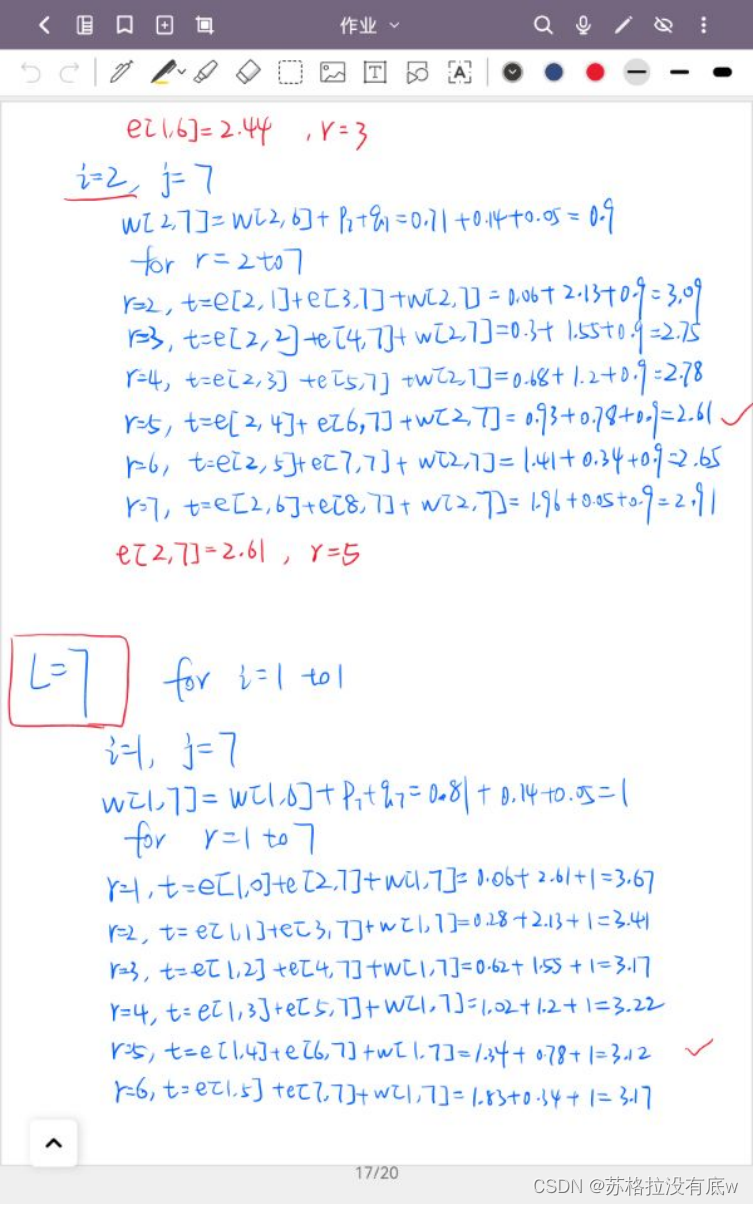 作业
e[1,6]=2.44 , r=3
i=2, j=7
w[2,7]=w[2,6]+P7+q7=0.71+0.14+0.05=0.9
for r=2 to 7
r=2, t=e[2,1]+e[3,7]+w[2,7]=0.06+2.13+0.9=3.09
r=3, t=e[2,2]+e[4,7]+w[2,7]=0.3+1.55+0.9=2.75
r=4, t=e[2,3]+e[5,7]+w[2,7]=0.68+1.2+0.9=2.78
r=5, t=e[2,4]+e[6,7]+w[2,7]=0.93+0.78+0.9=2.61 ✓
r=6, t=e[2,5]+e[7,7]+w[2,7]=1.41+0.34+0.9=2.65
r=7, t=e[2,6]+e[8,7]+w[2,7]=1.96+0.05+0.9=2.91
e[2,7]=2.61 , r=5
L=7 for i=1 to 1
i=1, j=7
w[1,7]=w[1,6]+P7+q7=0.81+0.14+0.05=1
for r=1 to 7
r=1, t=e[1,0]+e[2,7]+w[1,7]=0.06+2.61+1=3.67
r=2, t=e[1,1]+e[3,7]+w[1,7]=0.28+2.13+1=3.41
r=3, t=e[1,2]+e[4,7]+w[1,7]=0.62+1.55+1=3.17
r=4, t=e[1,3]+e[5,7]+w[1,7]=1.02+1.2+1=3.22
r=5, t=e[1,4]+e[6,7]+w[1,7]=1.34+0.78+1=3.12 ✓
r=6, t=e[1,5]+e[7,7]+w[1,7]=1.83+0.34+1=3.17
17/20
CSDN @苏格拉没有底w